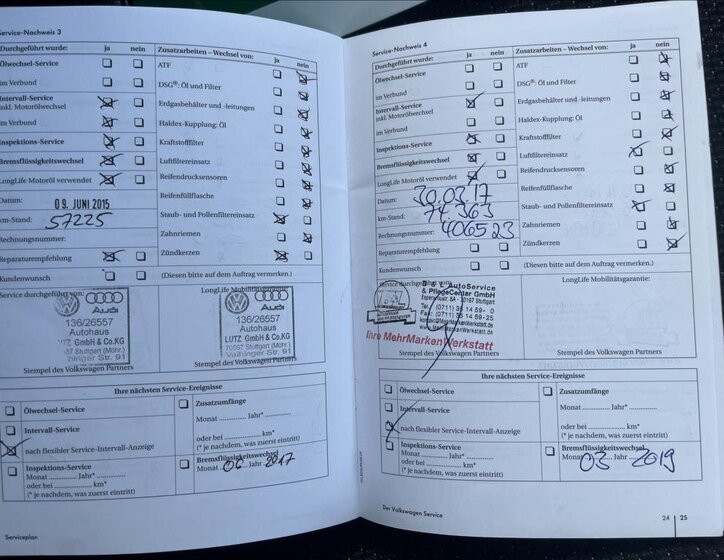 Service-Nachweis 3
Durchgeführt wurde: ja nein
Ölwechsel-Service
im Verbund
Intervall-Service
inkl. Motorölwechsel
im Verbund
Inspektions-Service
Bremsflüssigkeitswechsel
LongLife Motoröl verwendet
Datum: 09. JUNI 2015
km-Stand: 57225
Rechnungsnummer:
Reparaturempfehlung
Kundenwunsch
Zusatzarbeiten – Wechsel von: ja nein
ATF
DSG®: Öl und Filter
Erdgasbehälter und -leitungen
Haldex-Kupplung: Öl
Kraftstofffilter
Luftfiltereinsatz
Reifendrucksensoren
Reifenfüllflasche
Staub- und Pollenfiltereinsatz
Zahnriemen
Zündkerzen
(Diesen bitte auf dem Auftrag vermerken.)
Service durchgeführt von:
Audi
136/26557
Autohaus
LUTZ GmbH & Co.KG
Stuttgart (Möhr.)
Str. 91
Stempel des Volkswagen Partners
LongLife Mobilitätsgarantie:
Audi
136/26557
Autohaus
LUTZ GmbH & Co.KG
70567 Stuttgart (Möhr.)
Vaihinger Str. 91
Stempel des Volkswagen Partners
Ihre nächsten Service-Ereignisse
Ölwechsel-Service
Intervall-Service
nach flexibler Service-Intervall-Anzeige
Inspektions-Service
Monat ............ Jahr*............
oder bei ............ km*
(* je nachdem, was zuerst eintritt)
Zusatzumfänge
Monat ............ Jahr*............
oder bei ............ km*
(* je nachdem, was zuerst eintritt)
Bremsflüssigkeitswechsel
Monat 06 Jahr 2017
Serviceplan
Service-Nachweis 4
Durchgeführt wurde: ja nein
Ölwechsel-Service
im Verbund
Intervall-Service
inkl. Motorölwechsel
im Verbund
Inspektions-Service
Bremsflüssigkeitswechsel
LongLife Motoröl verwendet
Datum: 30.03.17
km-Stand: 74 363
Rechnungsnummer: 406523
Reparaturempfehlung
Kundenwunsch
Zusatzarbeiten – Wechsel von: ja nein
ATF
DSG®: Öl und Filter
Erdgasbehälter und -leitungen
Haldex-Kupplung: Öl
Kraftstofffilter
Luftfiltereinsatz
Reifendrucksensoren
Reifenfüllflasche
Staub- und Pollenfiltereinsatz
Zahnriemen
Zündkerzen
(Diesen bitte auf dem Auftrag vermerken.)
Service durchgeführt von:
AutoService
& PflegeCenter GmbH
Stuttgart
Ihre MehrMarkenWerkstatt
Stempel des Volkswagen Partners
LongLife Mobilitätsgarantie:
Stempel des Volkswagen Partners
Ihre nächsten Service-Ereignisse
Ölwechsel-Service
Intervall-Service
nach flexibler Service-Intervall-Anzeige
Inspektions-Service
Monat ............ Jahr*............
oder bei ............ km*
(* je nachdem, was zuerst eintritt)
Zusatzumfänge
Monat ............ Jahr*............
oder bei ............ km*
(* je nachdem, was zuerst eintritt)
Bremsflüssigkeitswechsel
Monat 03 Jahr 2019
Der Volkswagen Service
24 25